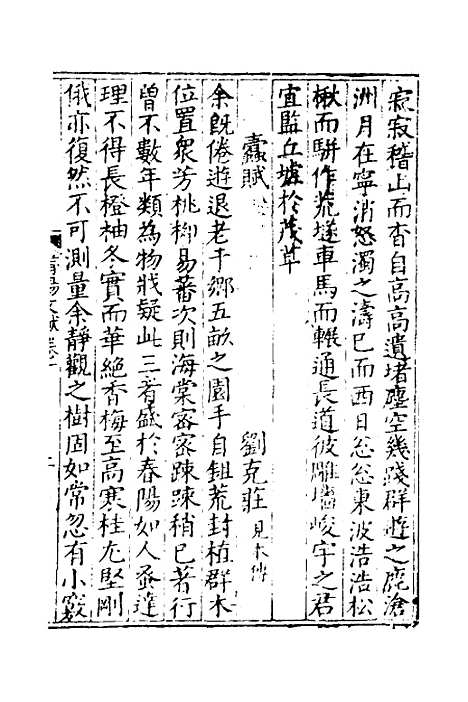 寂寂稽山而杳自高高遺堵塵空幾踐群遊之鹿滄
洲月在寧消怒濁之濤已而西日忩忩東波浩浩松
楸而駢作荒塗車馬而輾通長道彼雕墻峻宇之君
宜監丘墟於茂草
蠹賦 劉克莊見本傳
余旣倦遊退老于鄉五畝之園手自鉏荒封植群木
位置衆芳桃柳易蕃次則海棠密密踈踈稍已著行
曾不數年類為物戕疑此三者盛於春陽如人蚤達
理不得長橙柚冬實而華絶香梅至高寒桂尤堅剛
俄亦復然不可測量余靜觀之樹固如常忽有小竅
莆陽文獻卷一